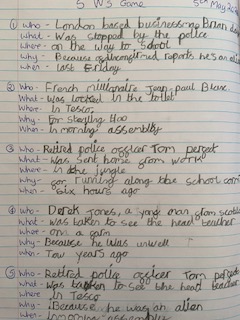 5 W's Game 5th May 202
① Who - London based businessman Brian
What - Was stopped by the police
Where - on the way to school
Why - Because of unconfirmed reports he's an ali
When - last Friday
② Who - French millionaire Jean paul Blanc
What - Was locked in the toilet
Where - In Tesco
Why - For stealing
When - In morning assembly
③ Who - Retired police officer Tom
What - Was sent home from work
Where - In the jungle
Why - for running along the school corri
When - six hours ago
④ Who - Derek Jones, a young man from scotla
What - was taken to see the head teacher
Where - on a farm
Why - Because he was unwell
When - Tow years ago
⑤ Who - Retired police officer Tom
What - Was taken to see the head teacher
Where - In Tesco
Why - Because he was an alien
When - In morning assembly